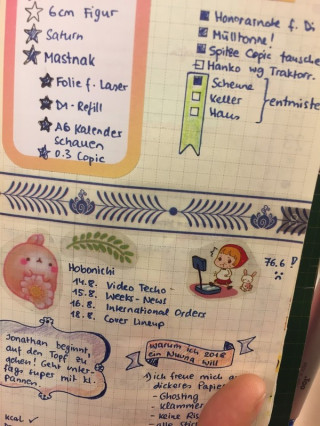 6cm Figur
Saturn
Mastnak
Folie f. Laser
D1-Refill
A6 Kalender
schauen
0.3 Copic
Honorarnote f. Di
Mülltonne!
Spitze Copic tausche
Hanko wg Traktorr.
Scheune
Keller
Haus
entmiste
76.6 !
Hobonichi
14.8. Video Techo
15.8. Weeks-News
16.8. International Orders
18.8. Cover Lineup
Jonathan beginnt,
auf den Topf zu
gehen! Geht unter-
tags super mit kl.
Pannen.
Warum ich 2018
ein will
1) ich freue mich a
dickeres Papier
- Ghosting
- Klammer
- keine Ris
- alle Stic
kcal ✓